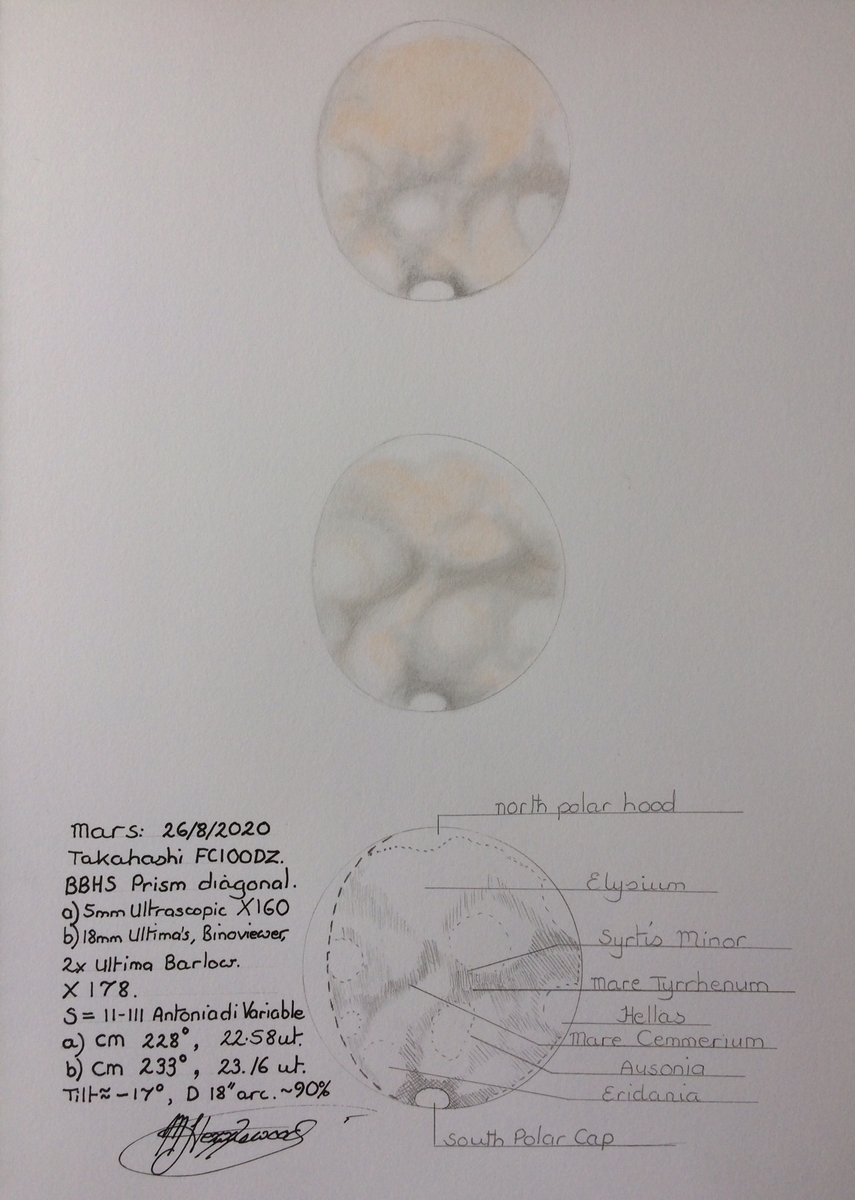 Mars: 26/8/2020
Takahashi FC100DZ.
BBHS Prism diagonal.
a) 5mm Ultrascopic X160
b) 18mm Ultima's, Binoviewer,
2x Ultima Barlow.
X 178.
S = II-III Antoniadi Variable
a) cm 228°, 22.58ut.
b) cm 233°, 23.16 ut.
Tilt ≈ -17°, D 18" arc. ~90%
north polar hood
Elysium
Syrtis Minor
Mare Tyrrhenum
Hellas
Mare Cemmerium
Ausonia
Eridania
South Polar Cap